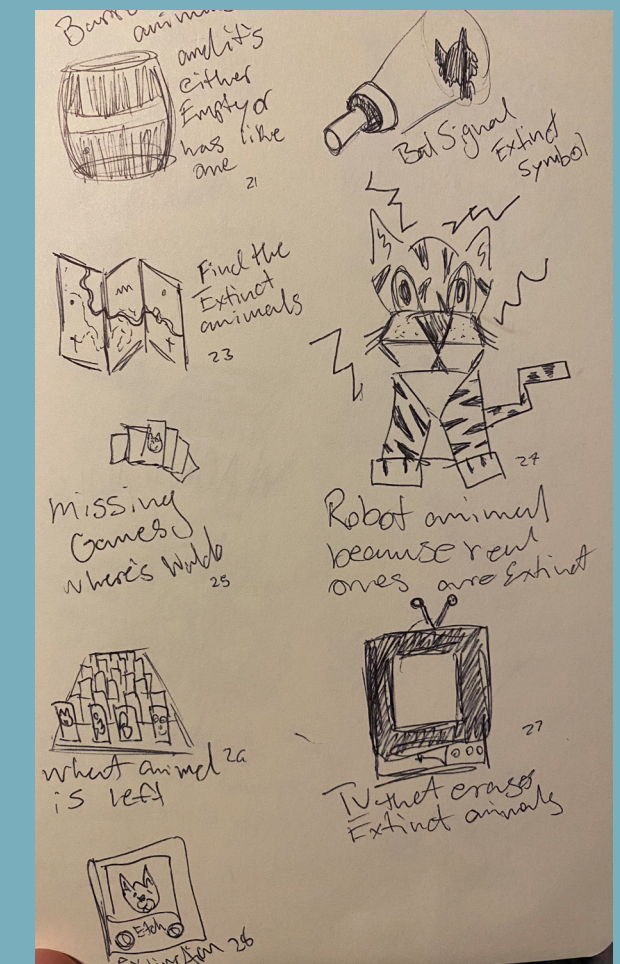 animals
and it's
either
Empty or
has like
one
21
Bat Signal
Extinct
Symbol
Find the
Extinct
animals
23
24
Missing
Games,
where's Waldo
25
Robot animal
because real
ones are Extinct
what animal
is left
26
27
TV that erases
Extinct animals
Etch
Extinction 28